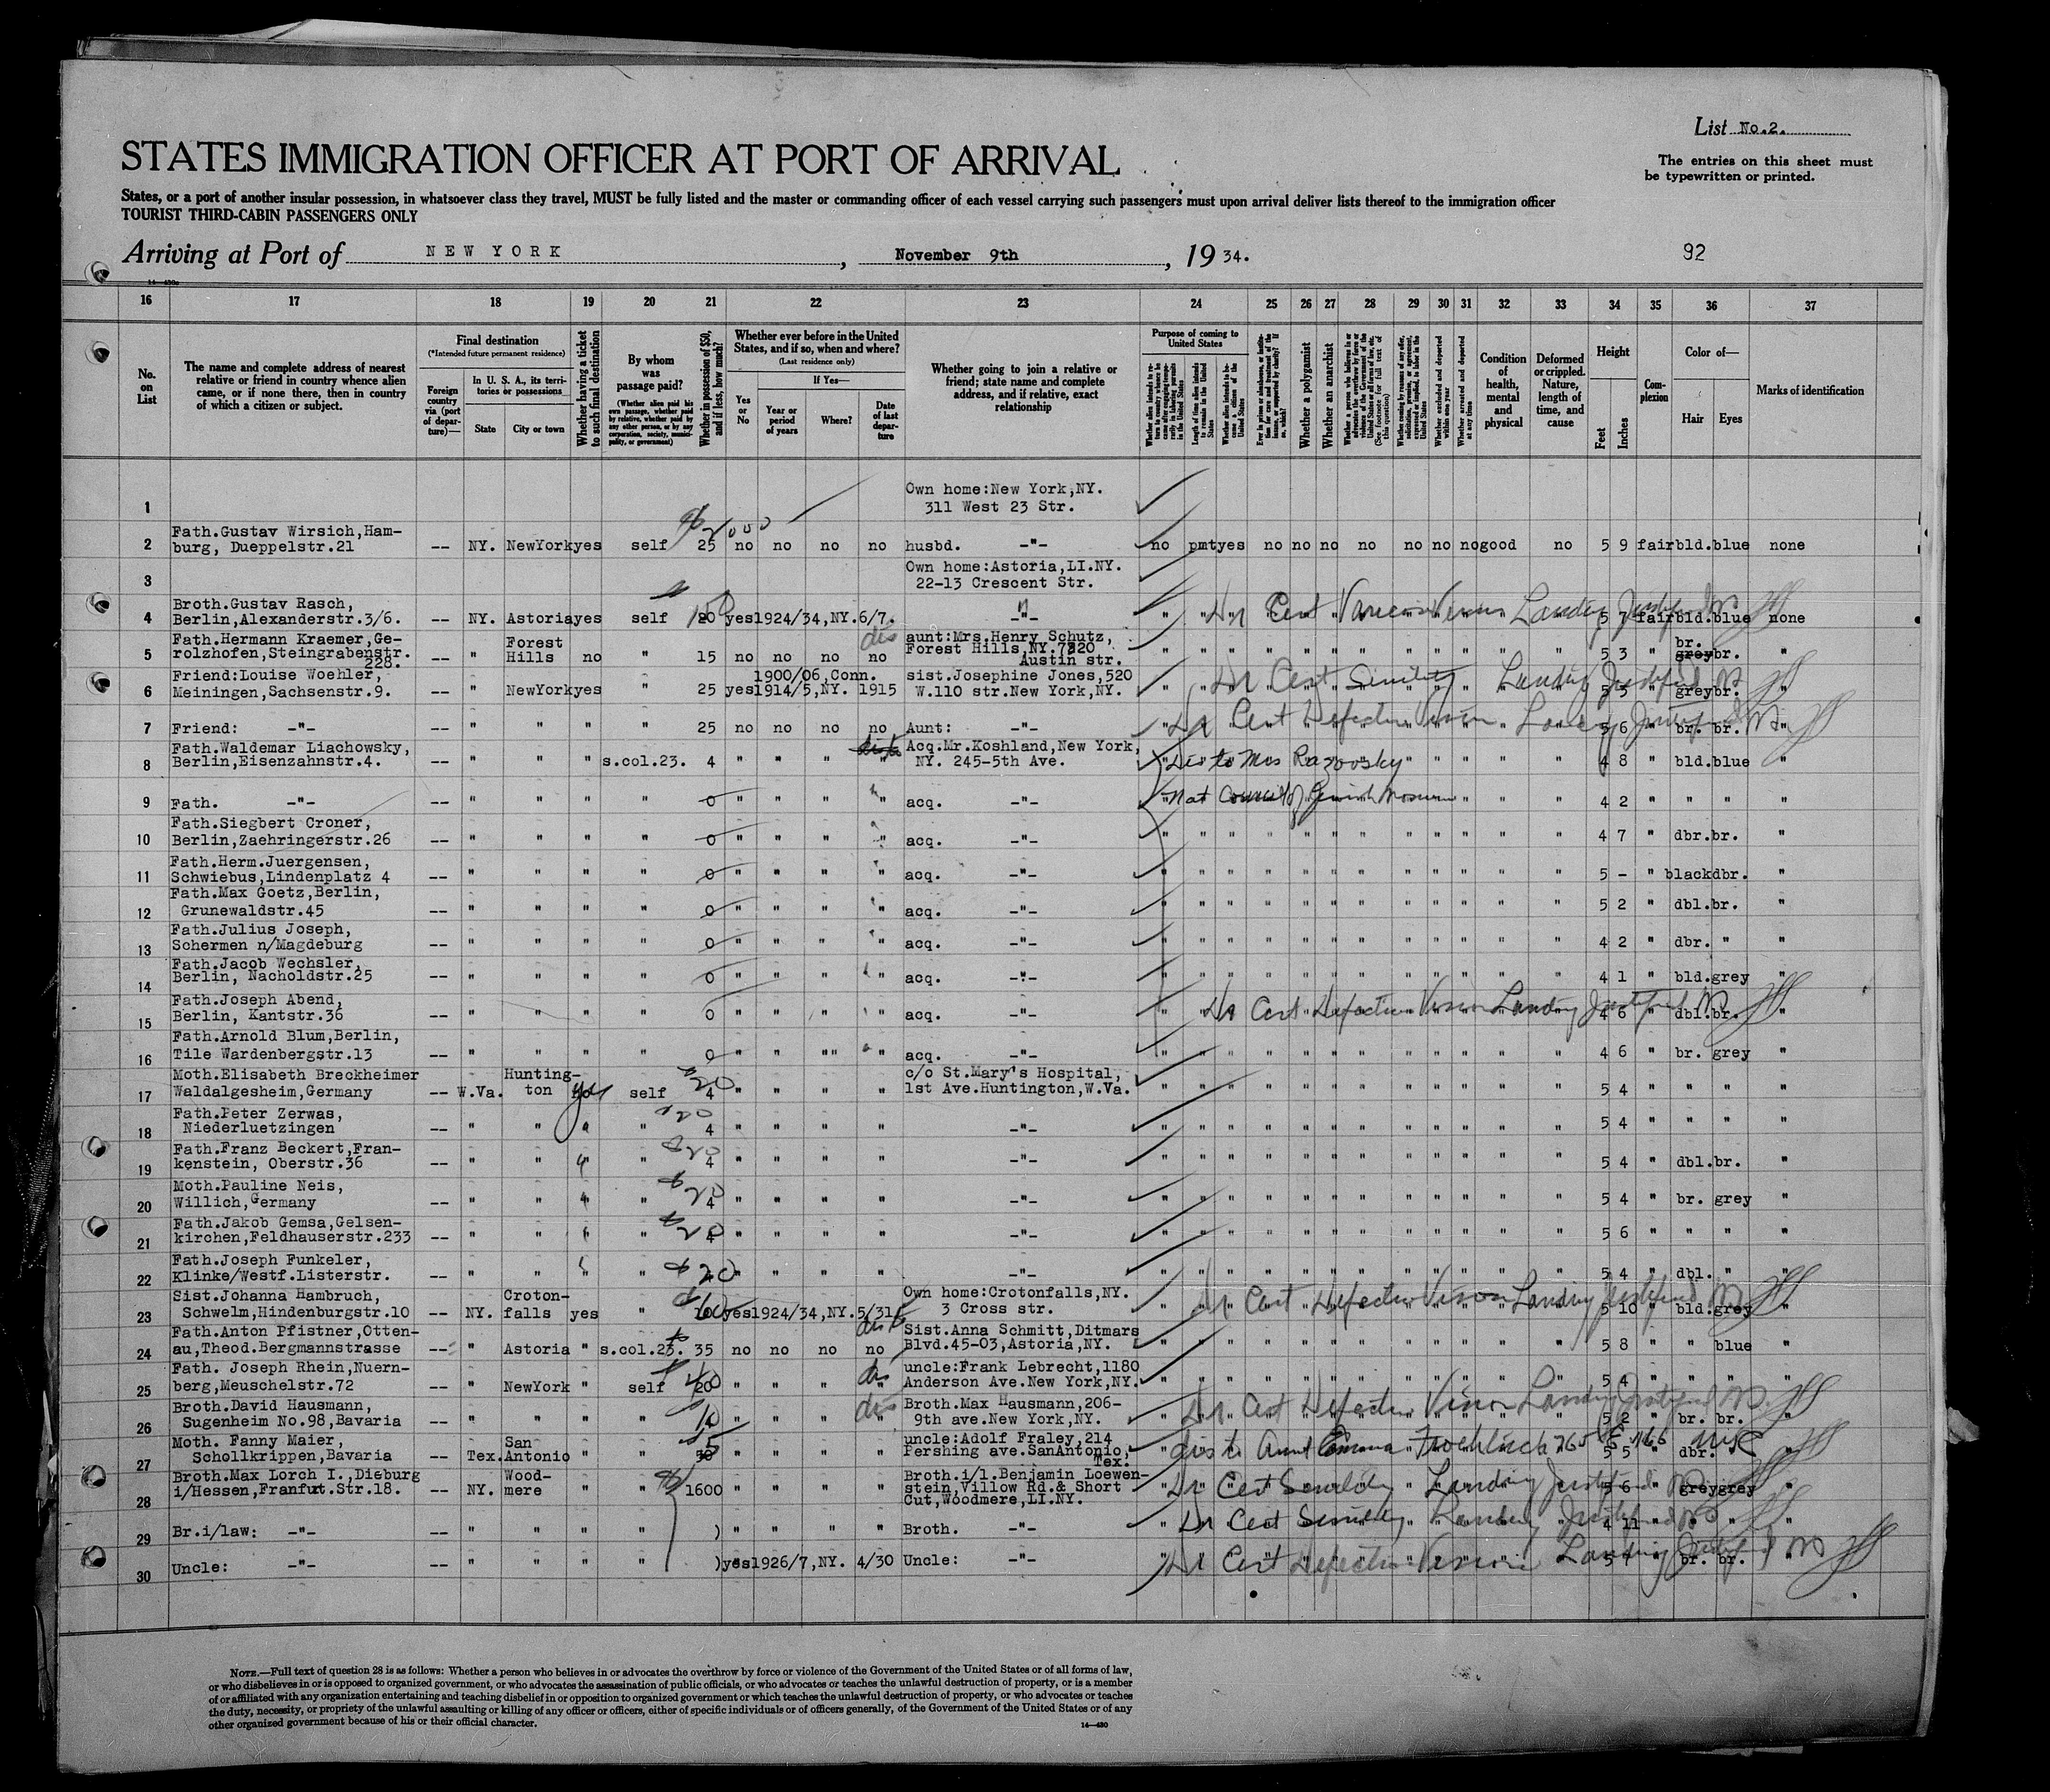 List No.2.
STATES IMMIGRATION OFFICER AT PORT OF ARRIVAL
The entries on this sheet must
be typewritten or printed.
States, or a port of another insular possession, in whatsoever class they travel, MUST be fully listed and the master or commanding officer of each vessel carrying such passengers must upon arrival deliver lists thereof to the immigration officer
TOURIST THIRD-CABIN PASSENGERS ONLY
Arriving at Port of NEW YORK, November 9th, 19 34.
92
16 17 18 19 20 21 22 23 24 25 26 27 28 29 30 31 32 33 34 35 36 37
No. on List
The name and complete address of nearest relative or friend in country whence alien came, or if none there, then in country of which a citizen or subject.
Final destination
(*Intended future permanent residence)
Foreign country via (port of departure)—
In U. S. A., its territories or possessions
State
City or town
Whether having a ticket to such final destination
By whom was passage paid?
(Whether alien paid his own passage, whether paid by relative, whether paid by any other person, or by any corporation, society, municipality, or government)
Whether in possession of $50, and if less, how much?
Whether ever before in the United States, and if so, when and where?
(Last residence only)
Yes or No
If Yes—
Year or period of years
Where?
Date of last departure
Whether going to join a relative or friend; state name and complete address, and if relative, exact relationship
Purpose of coming to United States
Whether a polygamist
Whether an anarchist
Condition of health, mental and physical
Deformed or crippled. Nature, length of time, and cause
Height
Feet
Inches
Complexion
Color of—
Hair
Eyes
Marks of identification
1 Own home:New York,NY.
311 West 23 Str.
Fath.Gustav Wirsich,Ham-
2 burg, Dueppelstr.21 -- NY. NewYork yes self 25 no no no no husbd. -"- no pmt yes no no no no no no no good no 5 9 fair bld. blue none
3 Own home:Astoria,LI.NY.
22-13 Crescent Str.
Broth.Gustav Rasch,
4 Berlin,Alexanderstr.3/6. -- NY. Astoria yes self yes 1924/34,NY. 6/7. -"- Cert Landing 5 7 fair bld. blue none
Fath.Hermann Kraemer,Ge- Forest aunt:Mrs.Henry Schutz,
5 rolzhofen,Steingrabenstr. -- " Hills no " 15 no no no no Forest Hills,NY. 5 3 " br. br. "
228. Austin str.
Friend:Louise Woehler, 1900/06,Conn. sist.Josephine Jones,520
6 Meiningen,Sachsenstr.9. -- " NewYork yes " 25 yes 1914/5,NY. 1915 W.110 str.New York,NY. Cert Senility Landing Justified 5 5 " grey br. "
7 Friend: -"- -- " " " " 25 no no no no Aunt: -"- Cert Defective Vision 5 6 " br. br. "
Fath.Waldemar Liachowsky, Acq.Mr.Koshland,New York,
8 Berlin,Eisenzahnstr.4. -- " " " s.col.23. 4 " " " " NY. 245-5th Ave. Dis to Mrs Razovsky 4 8 " bld. blue "
9 Fath. -"- -- " " " " 0 " " " " acq. -"- Nat Council of Jewish Women 4 2 " " " "
Fath.Siegbert Croner,
10 Berlin,Zaehringerstr.26 -- " " " " 0 " " " " acq. -"- 4 7 " dbr. br. "
Fath.Herm.Juergensen,
11 Schwiebus,Lindenplatz 4 -- " " " " 0 " " " " acq. -"- 5 - " black dbr. "
Fath.Max Goetz,Berlin,
12 Grunewaldstr.45 -- " " " " 0 " " " " acq. -"- 5 2 " dbl. br. "
Fath.Julius Joseph,
13 Schermen n/Magdeburg -- " " " " 0 " " " " acq. -"- 4 2 " dbr. " "
Fath.Jacob Wechsler,
14 Berlin, Nacholdstr.25 -- " " " " 0 " " " " acq. -"- 4 1 " bld. grey "
Fath.Joseph Abend,
15 Berlin, Kantstr.36 -- " " " " 0 " " " " acq. -"- Cert Defective Vision Landing Justified 4 6 " dbl. br. "
Fath.Arnold Blum,Berlin,
16 Tile Wardenbergstr.13 -- " " " " 0 " " "" " acq. -"- 4 6 " br. grey "
Moth.Elisabeth Breckheimer Hunting- c/o St.Mary's Hospital,
17 Waldalgesheim,Germany -- W.Va. ton yes self 20 4 " " " " 1st Ave.Huntington,W.Va. 5 4 " " " "
Fath.Peter Zerwas,
18 Niederluetzingen -- " " " " 20 4 " " " " -"- 5 4 " " " "
Fath.Franz Beckert,Fran-
19 kenstein, Oberstr.36 -- " " " " 20 4 " " " " -"- 5 4 " dbl. br. "
Moth.Pauline Neis,
20 Willich,Germany -- " " " " 20 4 " " " " -"- 5 4 " br. grey "
Fath.Jakob Gemsa,Gelsen-
21 kirchen,Feldhauserstr.233 -- " " " " 20 4 " " " " -"- 5 6 " " " "
Fath.Joseph Funkeler,
22 Klinke/Westf.Listerstr. -- " " " " 20 " " " " -"- 5 4 " dbl. " "
Sist.Johanna Hambruch, Croton- Own home:Crotonfalls,NY.
23 Schwelm,Hindenburgstr.10 -- NY. falls yes " yes 1924/34,NY. 5/31 3 Cross str. Cert Defective Vision Landing Justified 5 10 " bld. grey "
Fath.Anton Pfistner,Otten- Sist.Anna Schmitt,Ditmars
24 au,Theod.Bergmannstrasse -- " Astoria " s.col.23. 35 no no no no Blvd.45-03,Astoria,NY. 5 8 " " blue "
Fath. Joseph Rhein,Nuern- uncle:Frank Lebrecht,1180
25 berg,Meuschelstr.72 -- " NewYork " self 20 " " " " Anderson Ave.New York,NY. 5 4 " " " "
Broth.David Hausmann, Broth.Max Hausmann,206-
26 Sugenheim No.98,Bavaria -- " " " " " " " " 9th ave.New York,NY. Cert Defective Vision Landing Justified 5 2 " br. br. "
Moth. Fanny Maier, San uncle:Adolf Fraley,214
27 Schollkrippen,Bavaria -- Tex. Antonio " " " " " " Pershing ave.SanAntonio, dis to Aunt Emma 5 5 " dbr. "
Tex.
Broth.Max Lorch I.,Dieburg Wood- Broth.i/l.Benjamin Loewen-
28 i/Hessen,Franfurt.Str.18. -- NY. mere " " 1600 " " " " stein,Villow Rd.& Short Cert Senility Landing Justified 5 6 " grey grey "
Cut,Woodmere,LI.NY.
29 Br.i/law: -"- -- " " " " ) " " " " Broth. -"- Cert Senility Landing Justified 4 11 " " " "
30 Uncle: -"- -- " " " " ) yes 1926/7,NY. 4/30 Uncle: -"- Cert Defective Vision Landing Justified br. br.
NOTE.—Full text of question 28 is as follows: Whether a person who believes in or advocates the overthrow by force or violence of the Government of the United States or of all forms of law,
or who disbelieves in or is opposed to organized government, or who advocates the assassination of public officials, or who advocates or teaches the unlawful destruction of property, or is a member
of or affiliated with any organization entertaining and teaching disbelief in or opposition to organized government or which teaches the unlawful destruction of property, or who advocates or teaches
the duty, necessity, or propriety of the unlawful assaulting or killing of any officer or officers, either of specific individuals or of officers generally, of the Government of the United States or of any
other organized government because of his or their official character.
14—430